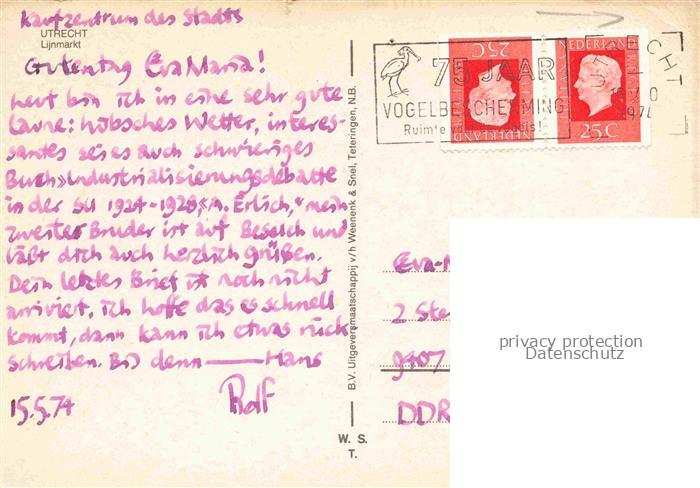 Kaufzentrum des Stadts
UTRECHT
Lijnmarkt
Gutentag Eva Maria!
heut bin ich in eine sehr gute
laune: hübsches Wetter, interes-
santes sei es auch schwieriges
Buch »Industrialisierungsdebatte
in der SU 1924-1928« A. Erlich, mein
zweiter Bruder ist auf Besuch und
läßt dich auch herzlich grüßen.
Dein letztes Brief ist noch nicht
arriviert, ich hoffe das es schnell
kommt, dann kann ich etwas rück
schreiben. Bis denn — Hans
Rolf
15.5.74
B.V. Uitgeversmaatschappij v/h Weenenk & Snel, Teteringen, N.B.
W. S.
T.
75 JAAR
VOGELBESCHERMING
NEDERLAND
25C
NEDERLAND
25C
Eva-
2
9407
DDR
privacy protection
Datenschutz